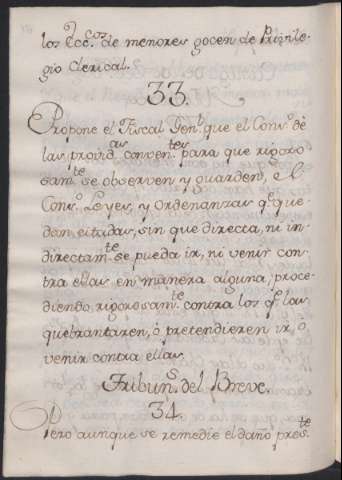 los Ecc.cos de menores gocen de Privile-
gio Clerical.
33.
Propone el Fiscal Gen.l que el Cons.o dè
las provid.as conven.tes para que rigoro
sam.te se observen y guarden, el
Cons.o Leyes, y Ordenanzas q.e que-
dan citadas, sin que directa, ni in-
directam.te se pueda ir, ni venir con-
tra ellas en manera alguna, proce-
diendo rigorosam.te contra los q.e las
quebrantaren, ò pretendieren ir, ò
venir contra ellas.
Tribun.s del Breve.
34.
Pero aunque se remedie el daño pres.te